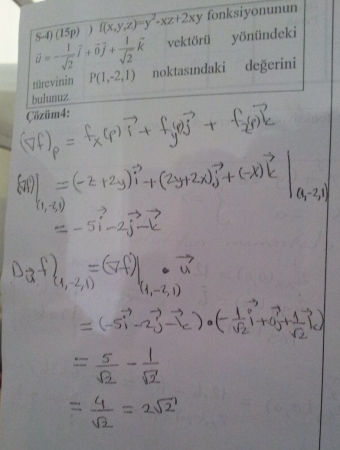 S-4) (15p) ) f(x,y,z)=y²-xz+2xy fonksiyonunun
u⃗ = -1/√2 i⃗ + 0j⃗ + 1/√2 k⃗ vektörü yönündeki
türevinin P(1,-2,1) noktasındaki değerini
bulunuz
Çözüm4:
(∇f)_P = f_x(P) i⃗ + f_y(P) j⃗ + f_z(P) k⃗
(∇f)|_(1,-2,1) = (-z+2y) i⃗ + (2y+2x) j⃗ + (-x) k⃗ |_(1,-2,1)
= -5i⃗ -2j⃗ -k⃗
D_u⃗ f)_(1,-2,1) = (∇f)|_(1,-2,1) • u⃗
= (-5i⃗ -2j⃗ -k⃗) • (-1/√2 i⃗ + 0j⃗ + 1/√2 k⃗)
= 5/√2 - 1/√2
= 4/√2 = 2√2